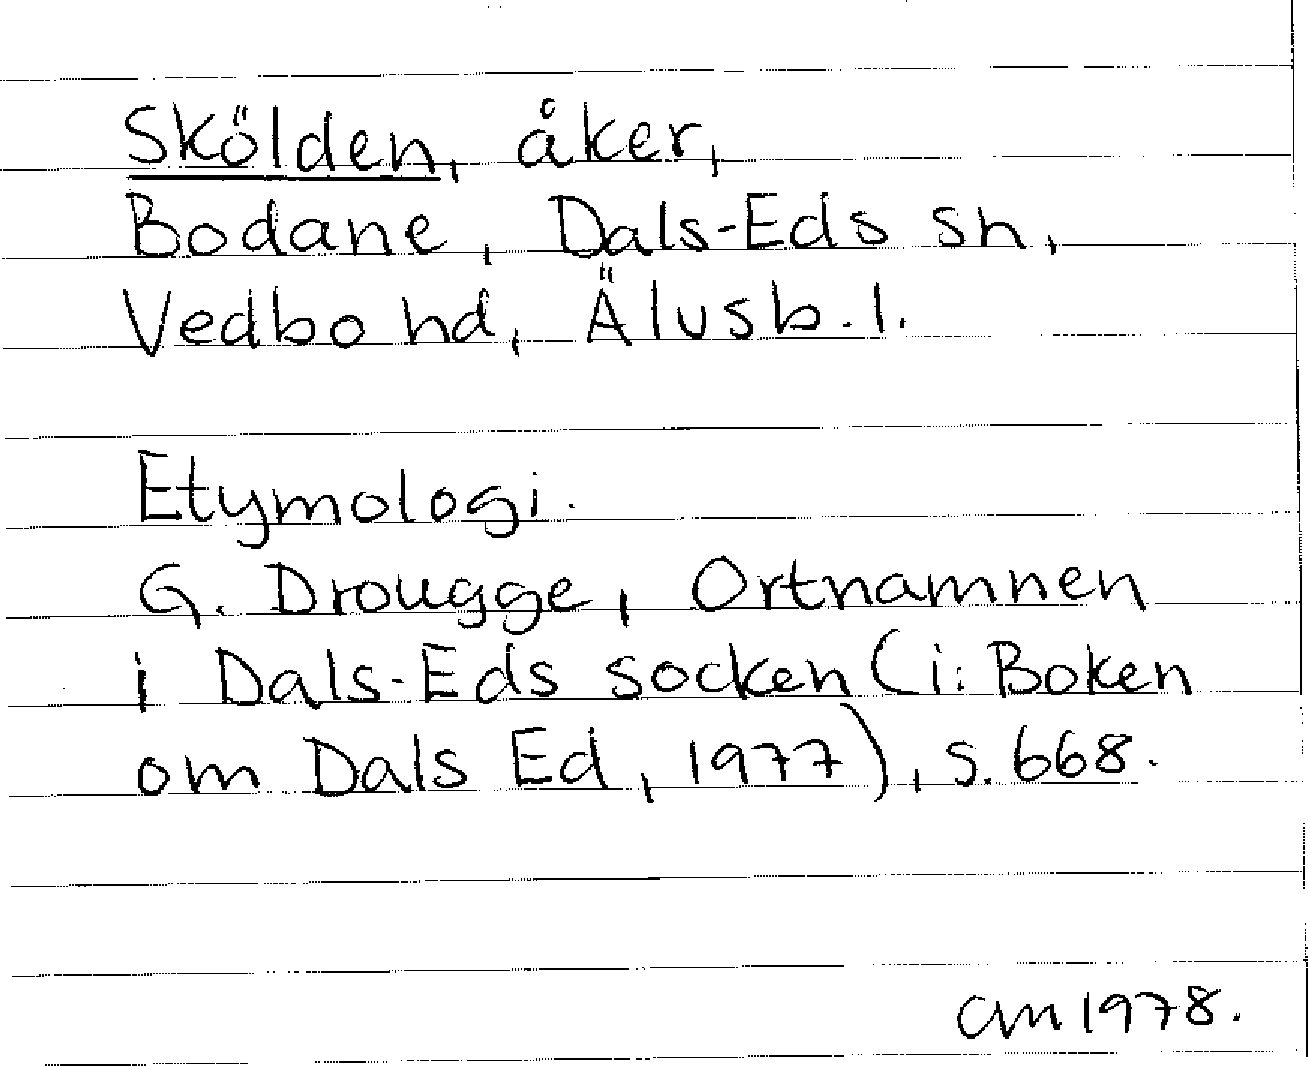 Skölden, åker,
Bodane, Dals-Eds sn,
Vedbo hd, Älvsb. l.
Etymologi.
G. Drougge, Ortnamnen
i Dals-Eds socken (i: Boken
om Dals Ed, 1977), s. 668.
CM 1978.